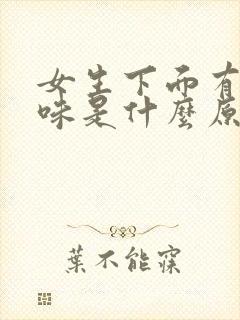 女生下面有
味是什麼原
葉不能寐